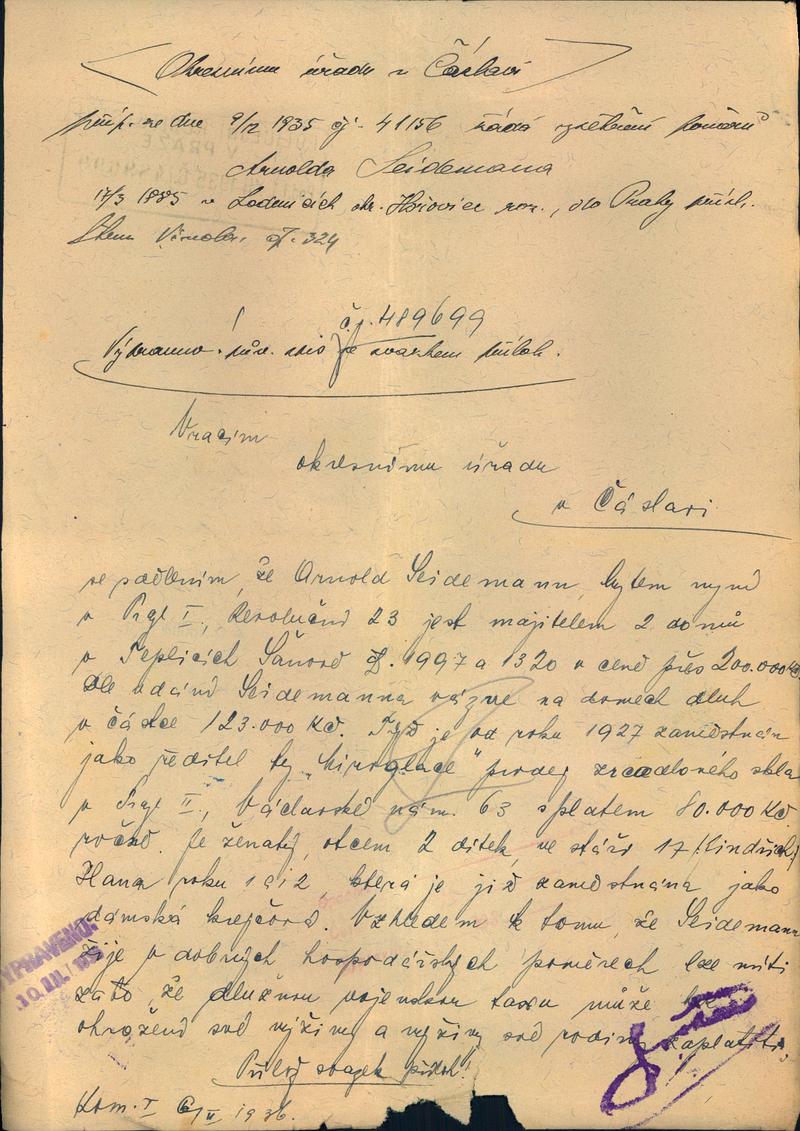 Okresnímu úřadu v Čáslavi
příp. ze dne 9/12 1935 čj. 41156 žádá vyšetření poměrů
Arnolda Seidemanna
17/3 1885 v Lodenicích okr. Hořovice nar., do Prahy přísl.
čp. 324
čj. 489699
spis se svazkem příloh.
Vracím
okresnímu úřadu
v Čáslavi
se sdělením, že Arnold Seidemann, bytem nyní
v Praze I., Revoluční 23 jest majitelem 2 domů
v Teplicích Šanově čp. 1997 a 1320 v ceně přes 200.000 Kč.
Dle udání Seidemanna vázne na domech dluh
v částce 123.000 Kč. Týž je od roku 1927 zaměstnán
jako ředitel fy „Miroglace" prodej zrcadlového skla
v Praze II., Václavské nám. 63 s platem 80.000 Kč
ročně. Je ženatý, otcem 2 dítek, ve stáří 17 (Jindřich)
Hana roku 1912, která je již zaměstnána jako
dámská krejčová. Vzhledem k tomu, že Seidemann
žije v dobrých hospodářských poměrech lze míti
za to, že dlužnou vojenskou taxu může bez
ohrožení své výživy a výživy své rodiny zaplatiti.
Přilož svazek příloh!
Kom. I 6/II 1936.
VYPRAVENO:
10.III.